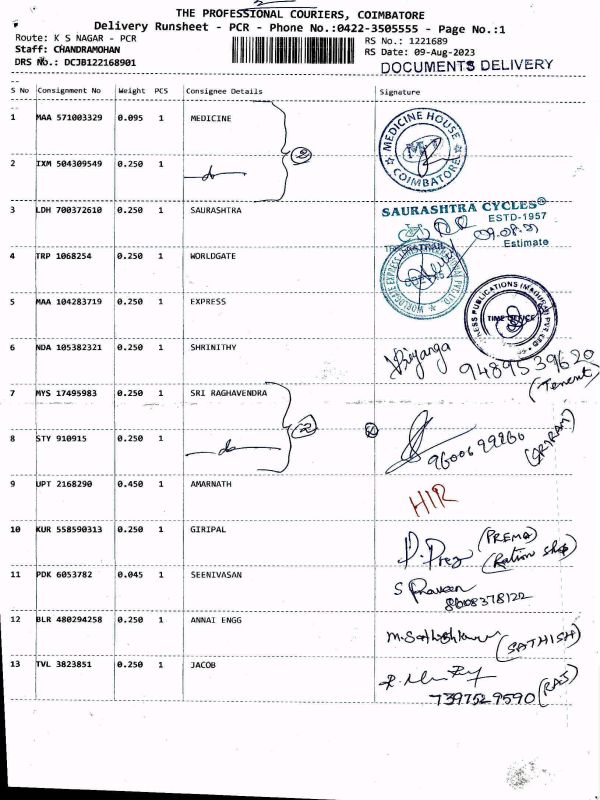 THE PROFESSIONAL COURIERS, COIMBATORE
Delivery Runsheet - PCR - Phone No.:0422-3505555 - Page No.:1
Route: K S NAGAR - PCR
RS No.: 1221689
Staff: CHANDRAMOHAN
RS Date: 09-Aug-2023
DRS No.: DCJB122168901
DOCUMENTS DELIVERY
S No Consignment No Weight PCS Consignee Details Signature
1 MAA 571003329 0.095 1 MEDICINE
MEDICINE HOUSE COIMBATORE
2 IXM 504309549 0.250 1 do 2
3 LDH 700372610 0.250 1 SAURASHTRA
SAURASHTRA CYCLES®
ESTD-1957
09.08.
Estimate
4 TRP 1068254 0.250 1 WORLDGATE
WORLDGATE EXPRESS
5 MAA 104283719 0.250 1 EXPRESS
PUBLICATIONS (MADURAI) PVT LTD
TIME OFFICE
6 NDA 105382321 0.250 1 SHRINITHY
9489539620
(Tenent)
7 MYS 17495983 0.250 1 SRI RAGHAVENDRA
8 STY 910915 0.250 1 do 2
9600699260
9 UPT 2168290 0.450 1 AMARNATH HIR
10 KUR 558590313 0.250 1 GIRIPAL
(PREMA)
(Ration shop)
11 PDK 6053782 0.045 1 SEENIVASAN S Praveen
8608378122
12 BLR 480294258 0.250 1 ANNAI ENGG M.Sathishkumar (SATHISH)
13 TVL 3823851 0.250 1 JACOB
7397529590 (RAJ)